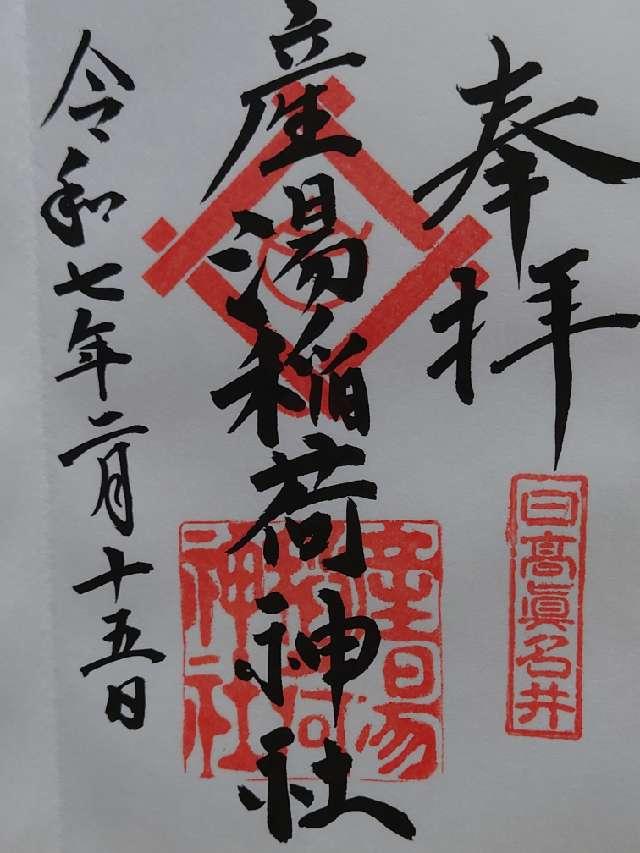 奉拝
日高眞名井
産湯稲荷神社
産湯稲荷神社
令和七年二月十五日